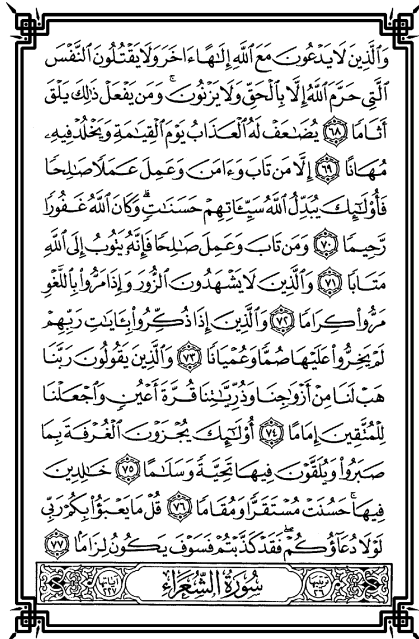 وَٱلَّذِينَ لَا يَدْعُونَ مَعَ ٱللَّهِ إِلَـٰهًا ءَاخَرَ وَلَا يَقْتُلُونَ ٱلنَّفْسَ
ٱلَّتِى حَرَّمَ ٱللَّهُ إِلَّا بِٱلْحَقِّ وَلَا يَزْنُونَ ۚ وَمَن يَفْعَلْ ذَٰلِكَ يَلْقَ
أَثَامًا ٦٨ يُضَـٰعَفْ لَهُ ٱلْعَذَابُ يَوْمَ ٱلْقِيَـٰمَةِ وَيَخْلُدْ فِيهِۦ
مُهَانًا ٦٩ إِلَّا مَن تَابَ وَءَامَنَ وَعَمِلَ عَمَلًا صَـٰلِحًا
فَأُو۟لَـٰٓئِكَ يُبَدِّلُ ٱللَّهُ سَيِّـَٔاتِهِمْ حَسَنَـٰتٍ ۗ وَكَانَ ٱللَّهُ غَفُورًا
رَّحِيمًا ٧٠ وَمَن تَابَ وَعَمِلَ صَـٰلِحًا فَإِنَّهُۥ يَتُوبُ إِلَى ٱللَّهِ
مَتَابًا ٧١ وَٱلَّذِينَ لَا يَشْهَدُونَ ٱلزُّورَ وَإِذَا مَرُّوا۟ بِٱللَّغْوِ
مَرُّوا۟ كِرَامًا ٧٢ وَٱلَّذِينَ إِذَا ذُكِّرُوا۟ بِـَٔايَـٰتِ رَبِّهِمْ
لَمْ يَخِرُّوا۟ عَلَيْهَا صُمًّا وَعُمْيَانًا ٧٣ وَٱلَّذِينَ يَقُولُونَ رَبَّنَا
هَبْ لَنَا مِنْ أَزْوَٰجِنَا وَذُرِّيَّـٰتِنَا قُرَّةَ أَعْيُنٍ وَٱجْعَلْنَا
لِلْمُتَّقِينَ إِمَامًا ٧٤ أُو۟لَـٰٓئِكَ يُجْزَوْنَ ٱلْغُرْفَةَ بِمَا
صَبَرُوا۟ وَيُلَقَّوْنَ فِيهَا تَحِيَّةً وَسَلَـٰمًا ٧٥ خَـٰلِدِينَ
فِيهَا ۚ حَسُنَتْ مُسْتَقَرًّا وَمُقَامًا ٧٦ قُلْ مَا يَعْبَؤُا۟ بِكُمْ رَبِّى
لَوْلَا دُعَآؤُكُمْ ۖ فَقَدْ كَذَّبْتُمْ فَسَوْفَ يَكُونُ لِزَامًۢا ٧٧
ترتيبها ٢٦ سُورَةُ ٱلشُّعَرَاءِ آياتها ٢٢٧